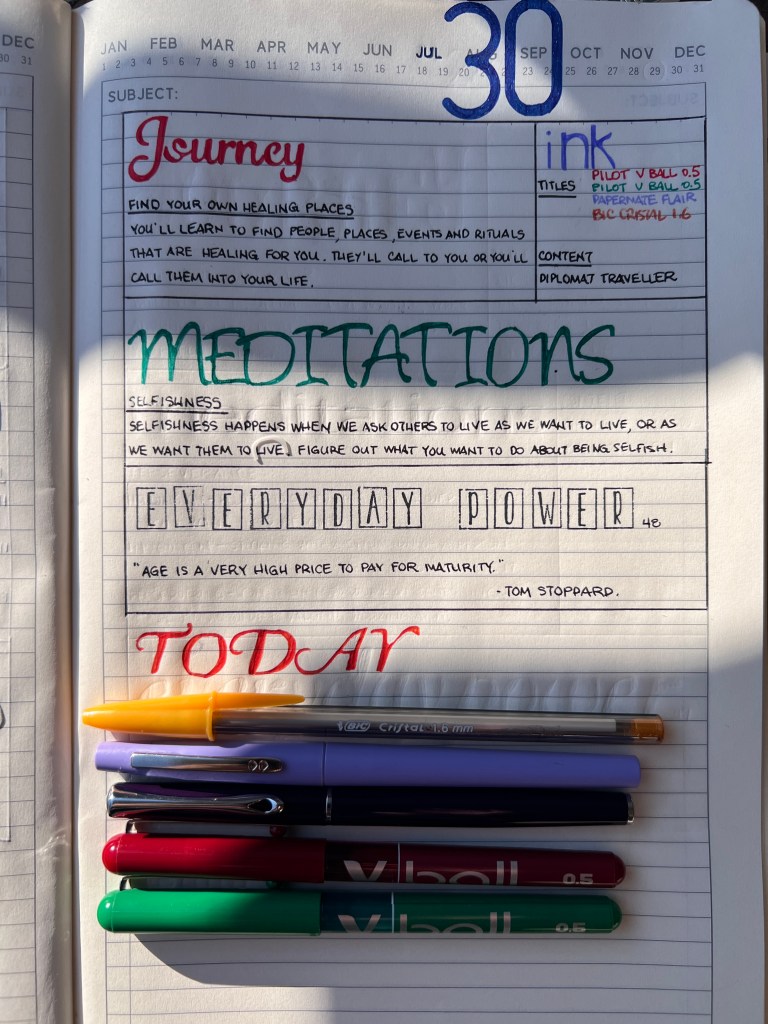 DEC
30 31
30
JAN FEB MAR APR MAY JUN JUL AUG SEP OCT NOV DEC
1 2 3 4 5 6 7 8 9 10 11 12 13 14 15 16 17 18 19 20 21 22 23 24 25 26 27 28 29 30 31
SUBJECT:
Journey
FIND YOUR OWN HEALING PLACES
YOU'LL LEARN TO FIND PEOPLE, PLACES, EVENTS AND RITUALS
THAT ARE HEALING FOR YOU. THEY'LL CALL TO YOU OR YOU'LL
CALL THEM INTO YOUR LIFE.
ink
TITLES
PILOT V BALL 0.5
PILOT V BALL 0.5
PAPERMATE FLAIR
BIC CRISTAL 1.6
CONTENT
DIPLOMAT TRAVELLER
MEDITATIONS
SELFISHNESS
SELFISHNESS HAPPENS WHEN WE ASK OTHERS TO LIVE AS WE WANT TO LIVE, OR AS
WE WANT THEM TO LIVE. FIGURE OUT WHAT YOU WANT TO DO ABOUT BEING SELFISH.
EVERYDAY POWER 48
"AGE IS A VERY HIGH PRICE TO PAY FOR MATURITY."
- TOM STOPPARD.
TODAY
BIC Cristal 1.6 mm
V ball 0.5
V ball 0.5